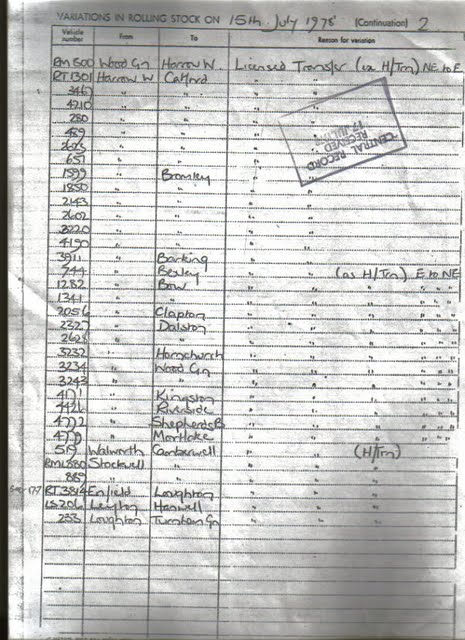 VARIATIONS IN ROLLING STOCK ON 15th July 1975 (Continuation) 2
Vehicle number From To Reason for variation
RM 500 Wood Gn Harrow W. Licensed Transfer (as H/Trn) NE to E
RT 1301 Harrow W Catford " "
" " " "
4210 " " " "
280 " " " "
489 " " " "
" " " "
657 " " " "
1599 " Bromley " "
1850 " " " "
2143 " " " "
2602 " " " "
2220 " " " "
4190 " " " "
3911 " Barking " "
744 " Bexley " (as H/Trn) E to NE
1282 " Bow " " " " "
1341 " " " " " " "
2056 " Clapton " " " " "
2327 " Dalston " " " " "
2628 " " " " " " "
3232 " Hornchurch " " " " "
3234 " Wood Gn " " " " "
3243 " " " " " " "
" Kingston " " " " "
4426 " Riverside " " " " "
" Shepherds B " " " " "
" Mortlake " " " " "
519 Walworth Camberwell " (H/Trn)
RML 880 Stockwell " " " "
889 " " " " "
RT 3814 Enfield Loughton " " "
LS 206 Leyton Hanwell " " "
253 Loughton Turnham Gn " " "
CENTRAL RECORD
RECEIVED